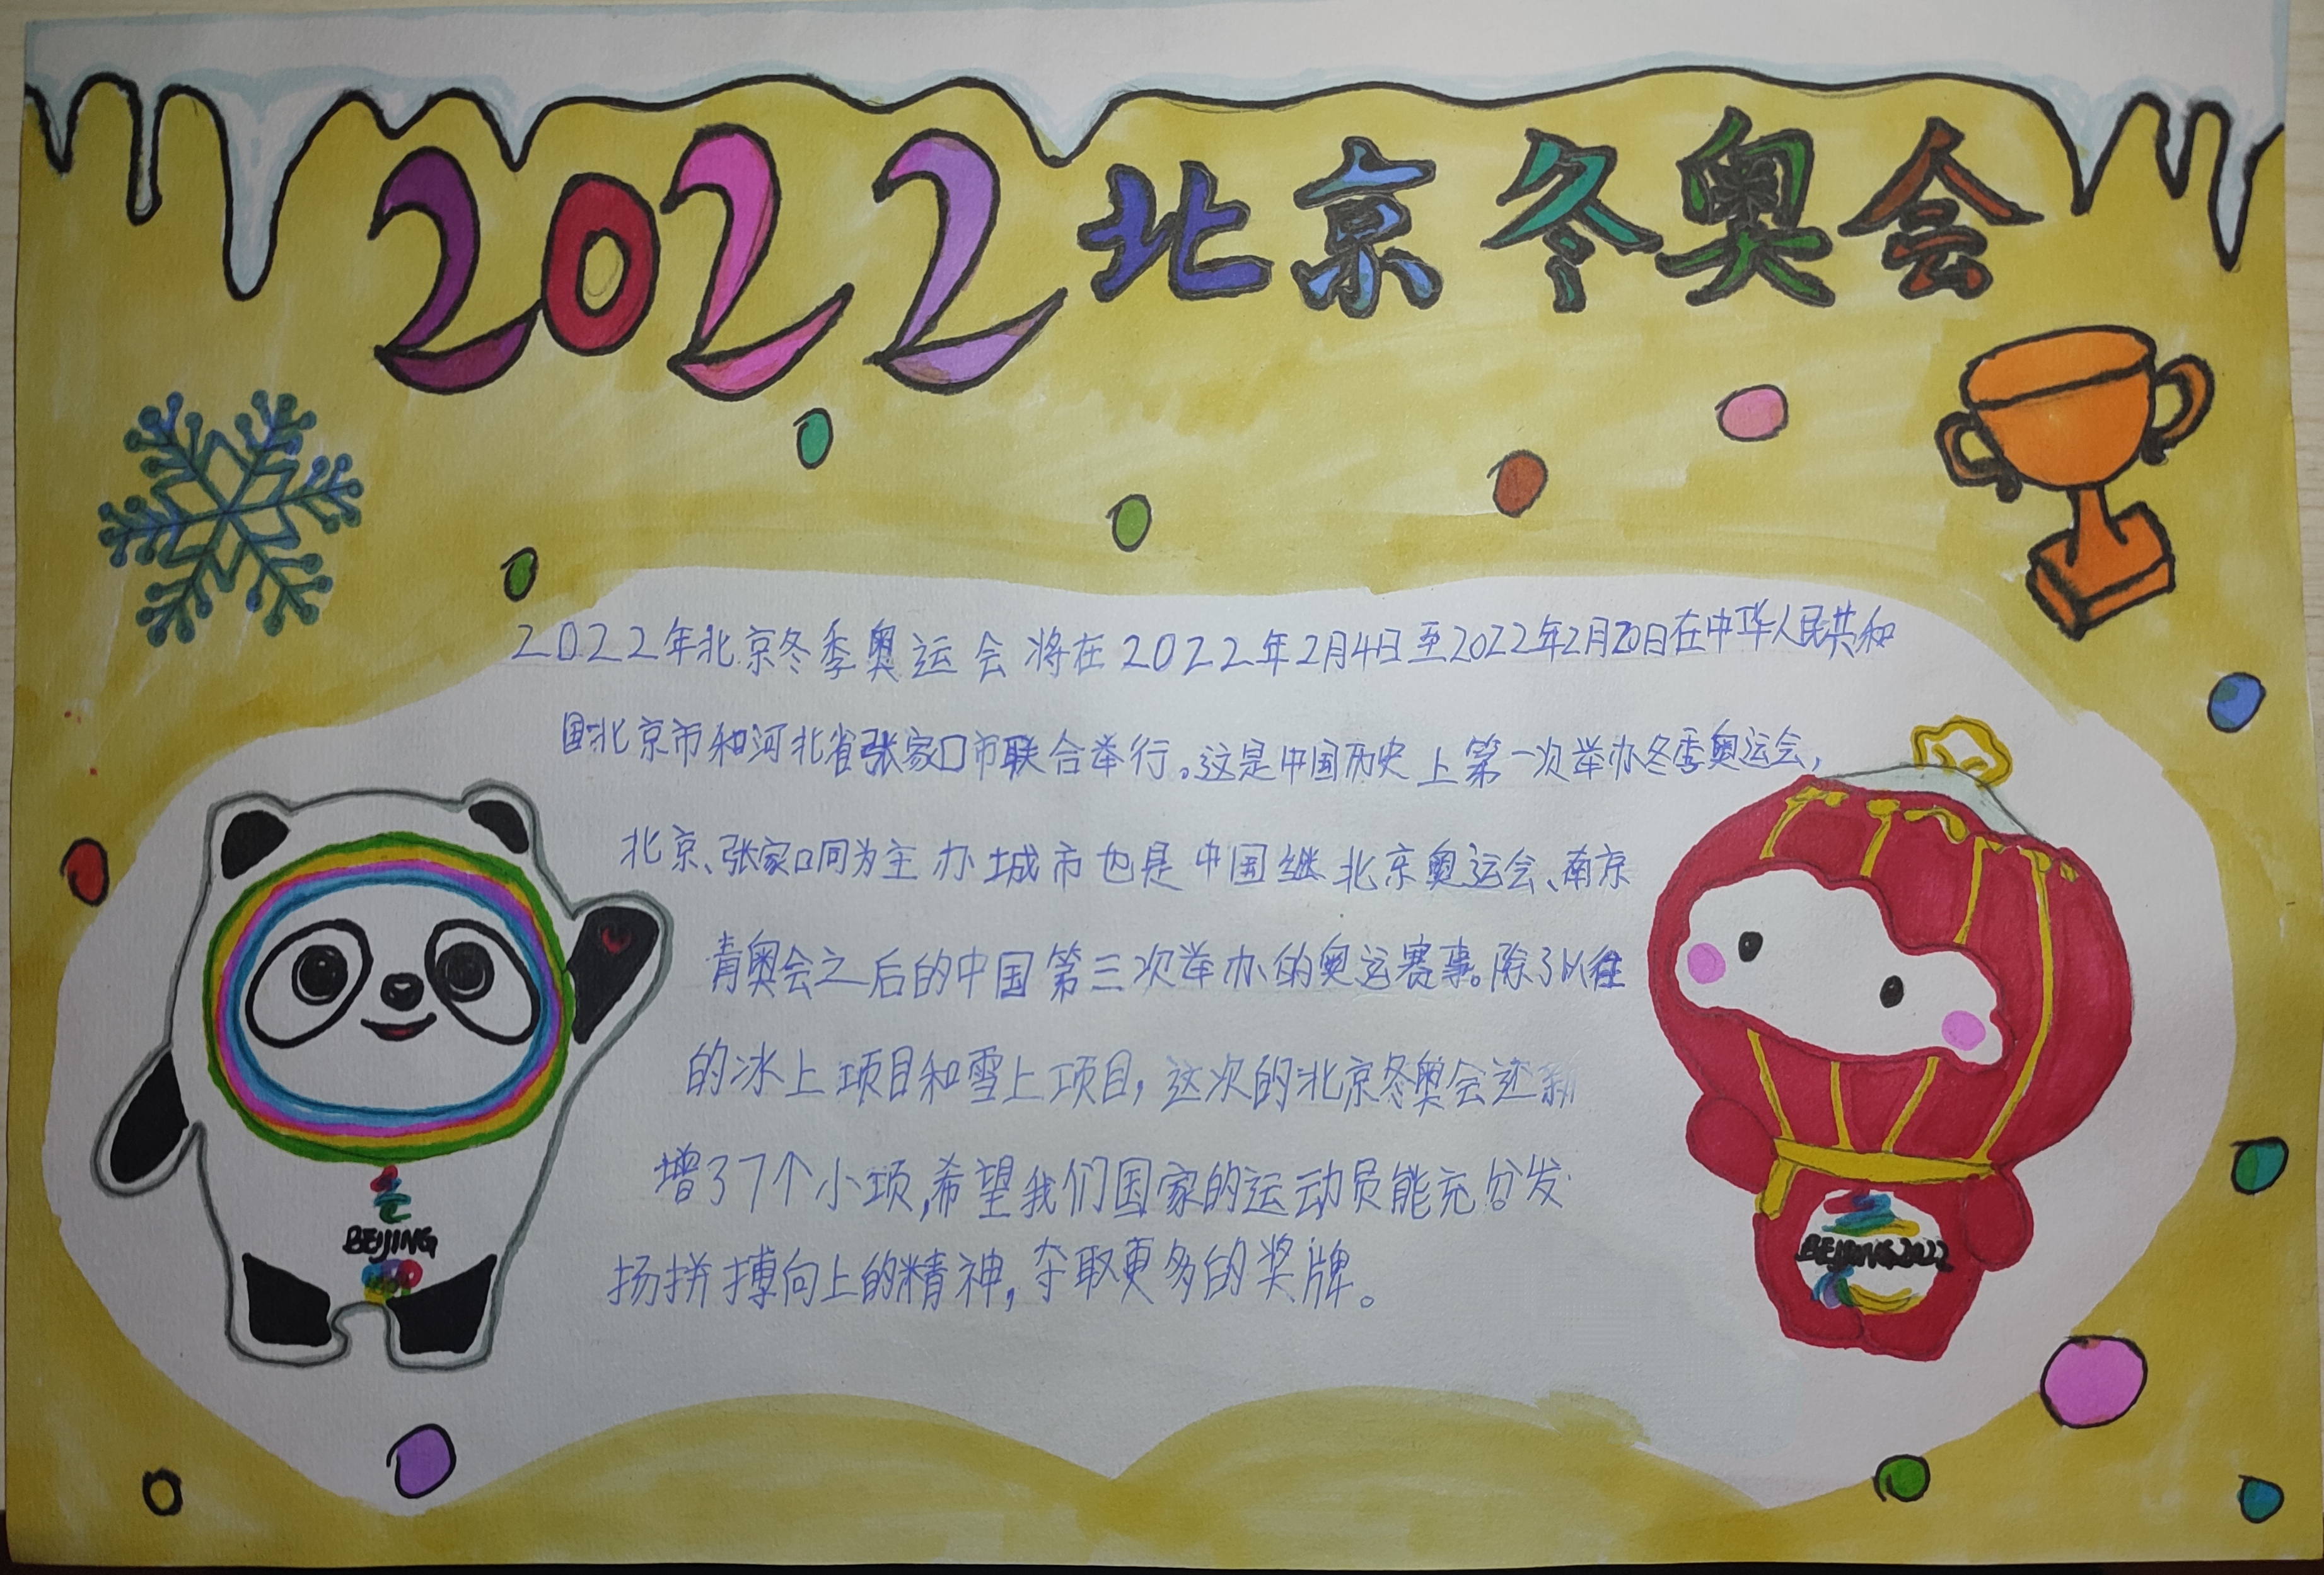 2022北京冬奥会
2022年北京冬季奥运会将在2022年2月4日至2022年2月20日在中华人民共和
国北京市和河北省张家口市联合举行。这是中国历史上第一次举办冬季奥运会,
北京、张家口同为主办城市也是中国继北京奥运会、南京
青奥会之后的中国第三次举办的奥运赛事。除了以往
的冰上项目和雪上项目,这次的北京冬奥会还新
增了7个小项,希望我们国家的运动员能充分发
扬拼搏向上的精神,夺取更多的奖牌。
BEIJING
BEIJING2022